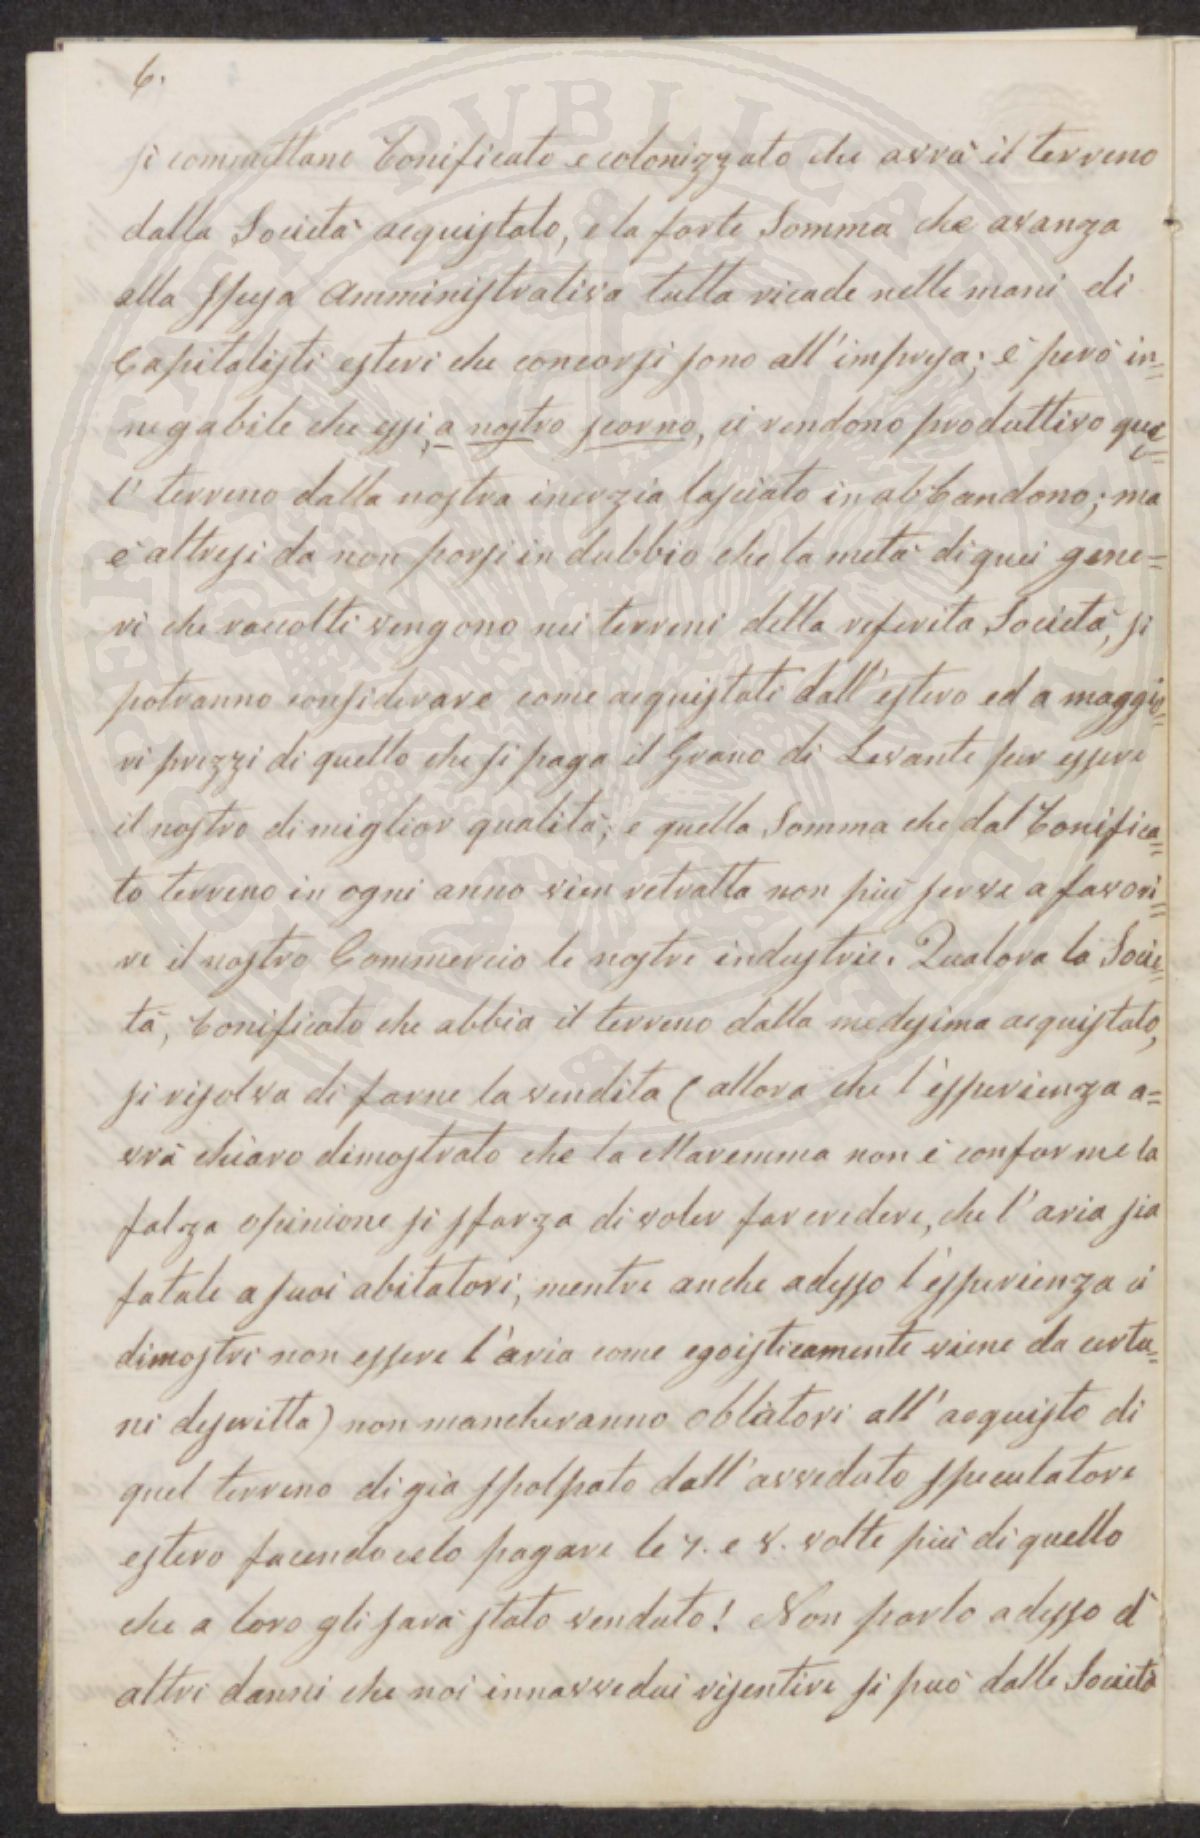 6.
si commettano bonificato e colonizzato che avrà il terreno
dalla Società acquistato, e la forte Somma che avanza
alla spesa Amministrativa tutta ricade nelle mani di
Capitalisti esteri che concorsi sono all'impresa; è però in=
negabile che essi, a nostro scorno, ci rendono produttivo que=
l' terreno dalla nostra inerzia lasciato in abbandono; ma
è altresì da non porsi in dubbio che la metà di quei gene=
ri che raccolti vengono nei terreni della referita Società, si
potranno considerare come acquistati dall'estero ed a maggio=
ri prezzi di quello che si paga il Grano di Levante per essere
il nostro di miglior qualità; e quella Somma che dal bonifica=
to terreno in ogni anno vien retratta non più serve a favori=
re il nostro Commercio le nostre industrie. Qualora la Socie=
tà, bonificato che abbia il terreno dalla medesima acquistato,
si risolva di farne la vendita (allora che l'esperienza a=
vrà chiaro dimostrato che la Maremma non è conforme la
falza opinione si sforza di voler far credere, che l'aria sia
fatale a suoi abitatori, mentre anche adesso l'esperienza ci
dimostri non essere l'aria come egoisticamente viene da certu=
ni descritta) non mancheranno oblatori all'acquisto di
quel terreno di già spolpato dall'avveduto speculatore
estero facendocelo pagare le 7. e 8. volte più di quello
che a loro gli sarà stato venduto! Non parlo adesso d'
altri danni che noi innavveduti risentire si può dalle Società
PUBLICAE